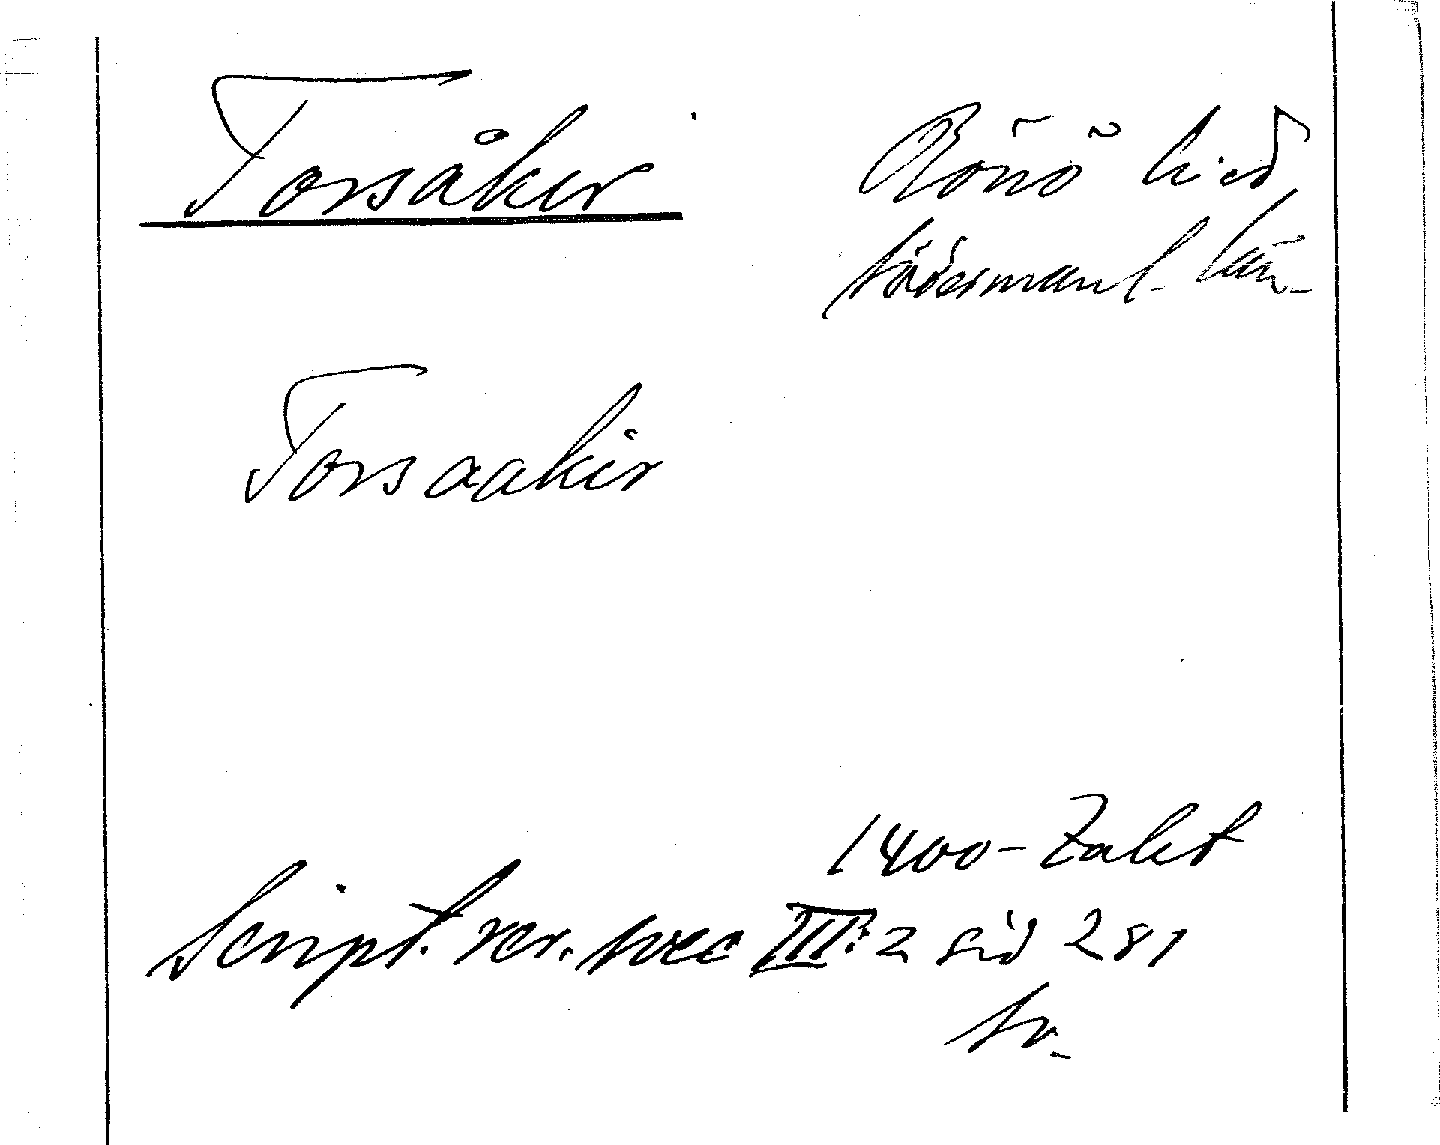 Torsåker
Rönö hd
Södermanl. län
Torsaakir
1400-talet
Script. rer. svec III:2 sid 281
tr.